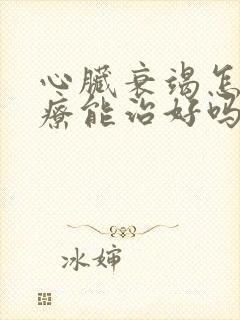 心臟衰竭怎
療能治好吗
冰婶